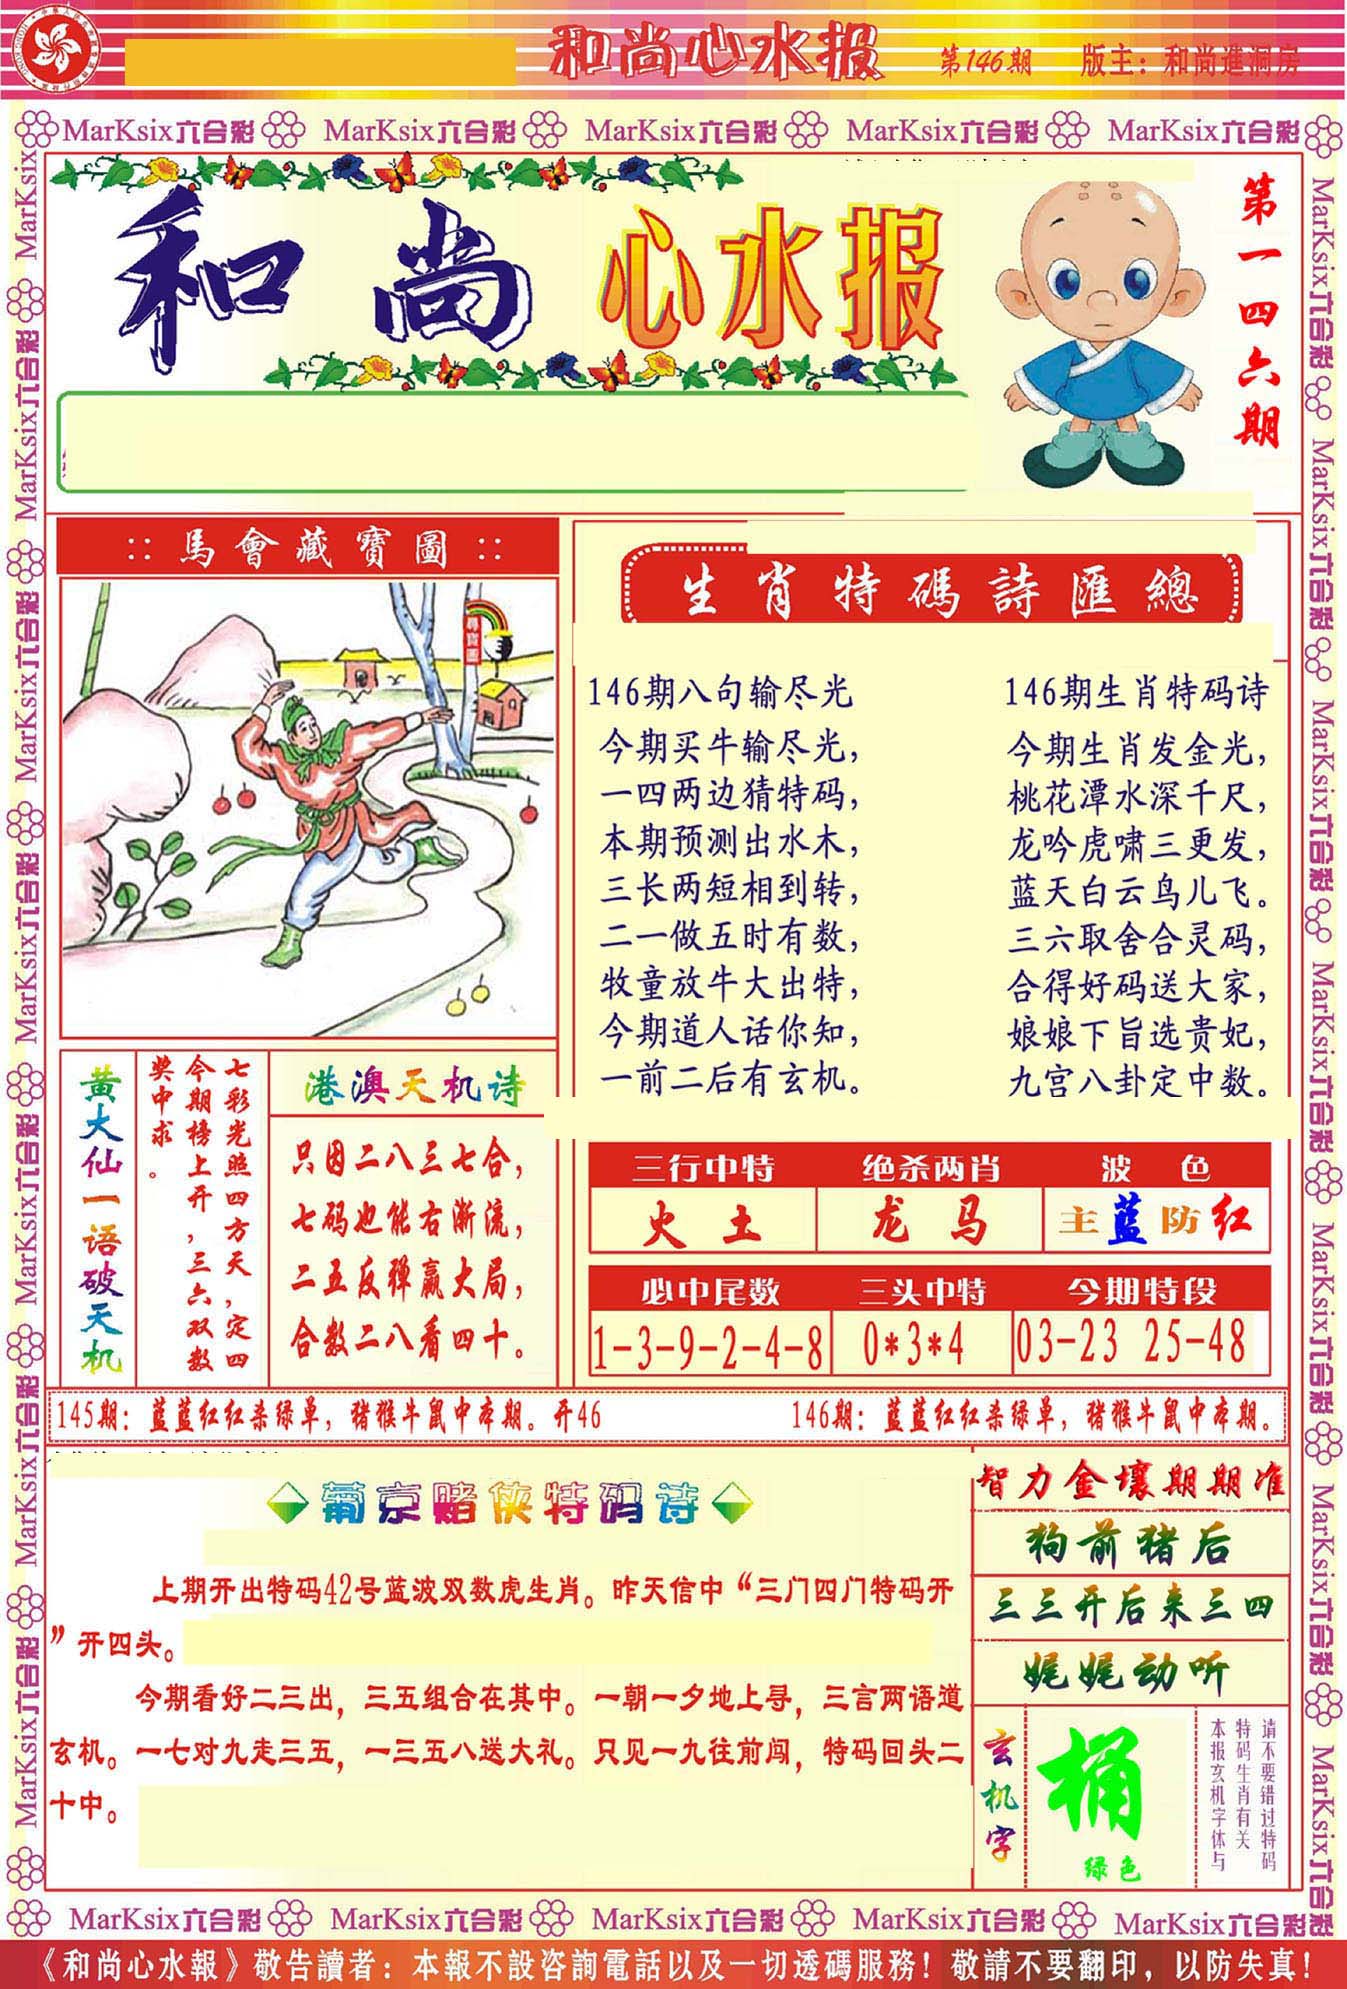 和尚心水报 第146期 版主：和尚進洞房
MarKsix六合彩 MarKsix六合彩 MarKsix六合彩 MarKsix六合彩 MarKsix六合彩
和尚心水报
第一四六期
::馬會藏寶圖::
尋寶圖
生肖特碼詩匯總
146期八句输尽光
今期买牛输尽光，
一四两边猜特码，
本期预测出水木，
三长两短相到转，
二一做五时有数，
牧童放牛大出特，
今期道人话你知，
一前二后有玄机。
146期生肖特码诗
今期生肖发金光，
桃花潭水深千尺，
龙吟虎啸三更发，
蓝天白云鸟儿飞。
三六取舍合灵码，
合得好码送大家，
娘娘下旨选贵妃，
九宫八卦定中数。
黄大仙一语破天机
七彩光照四方天，定四
今期榜上开，三六双数
奖中求。
港澳天机诗
只因二八三七合，
七码也能右渐流，
二五反弹赢大局，
合数二八看四十。
三行中特 绝杀两肖 波色
火土 龙马 主蓝防红
必中尾数 三头中特 今期特段
1-3-9-2-4-8 0*3*4 03-23 25-48
145期：蓝蓝红红杀绿单，猪猴牛鼠中本期。开46
146期：蓝蓝红红杀绿单，猪猴牛鼠中本期。
葡京赌侠特码诗
上期开出特码42号蓝波双数虎生肖。昨天信中“三门四门特码开
”开四头。
今期看好二三出，三五组合在其中。一朝一夕地上寻，三言两语道
玄机。一七对九走三五，一三五八送大礼。只见一九往前闯，特码回头二
十中。
智力金壤期期准
狗前猪后
三三开后来三四
娓娓动听
玄机字
桶
绿色
请不要错过特码
特码生肖有关
本报玄机字体与
MarKsix六合彩 MarKsix六合彩 MarKsix六合彩 MarKsix六合彩 MarKsix六合彩
《和尚心水報》敬告讀者：本報不設咨詢電話以及一切透碼服務！敬請不要翻印，以防失真！